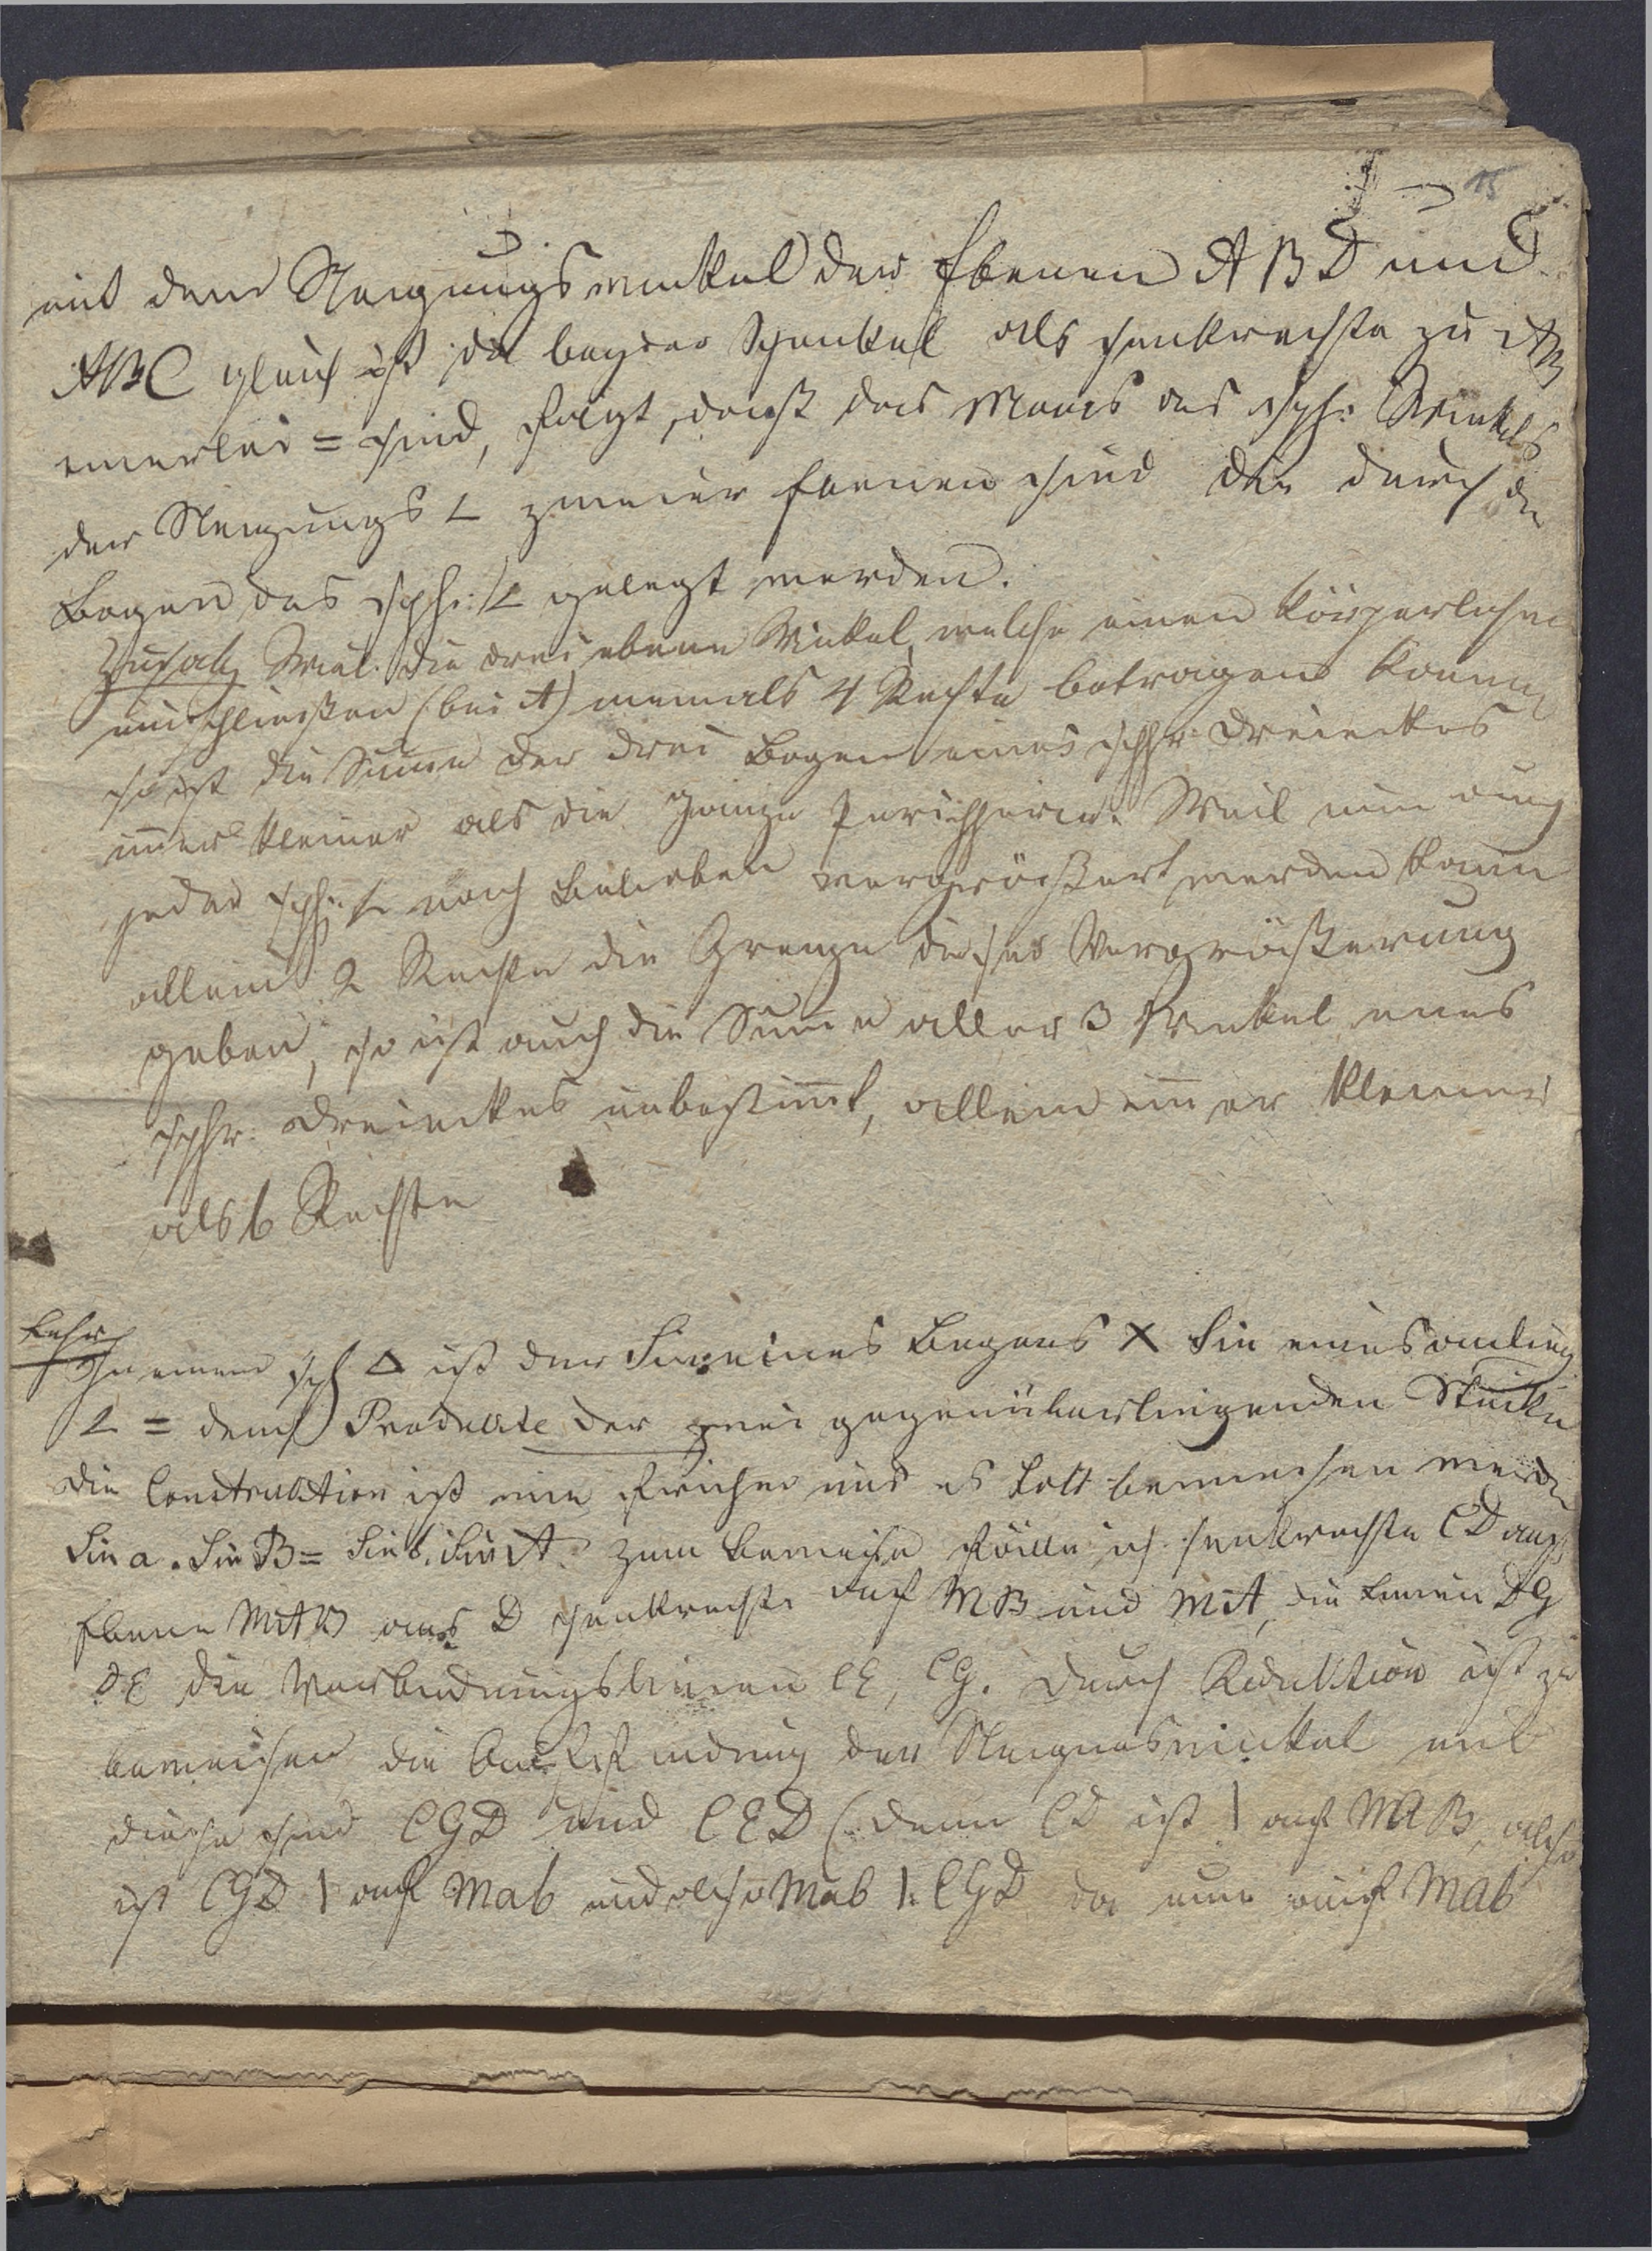 15
mit dem Neigungswinkel der Ebenen ABD und
ABC gleich ist da beyder Schenkel als senkrechte zu AB
einerlei = sind, folgt, daß das Maas des sph: Winkels
der Neigungs ∠ zweier Ebenen sind die durch die
Bogen des sph: ∠ gelegt werden.
Zusatz Weil die drei ebene Winkel, welche einen körperlichen
einschließen (bei A) niemals 4 Rechte betragen können
so ist die Summe der drei Bogen eines sphr Dreieckes
im̄er kleiner als die ganze Peripherie. Weil nun auch
jeder sph: ∠ nach Belieben vergrößert werden kann
allein 2 Rechte die Grenze dieser Vergrößerung
geben, so ist auch die Sum̄e aller 3 Winkel eines
sphr. Dreieckes unbestim̄t, allein im̄er kleiner
als 6 Rechte
Lehrs
In einem sph Δ ist der Sin eines Bogens X Sin eines anlieg
∠ = dem Produkte der zwei gegenüberliegenden Stücke
die Construktion ist wie früher und es soll bewiesen werden
Sin a . Sin B = Sin b. Sin A. zum Beweise fälle ich senkrechte CD auf
Ebene MAB aus D senkrechte auf MB und MA, die Linien DG
DE die Verbindungslinien CE, CG. Durch Reduktion ist zu
beweisen die Auffindung der Neigungswinkel und
diese sind CGD und CED (denn CD ist | auf MAB, also
ist CGD | auf Mab und also Mab | CGD da nun auch Mab